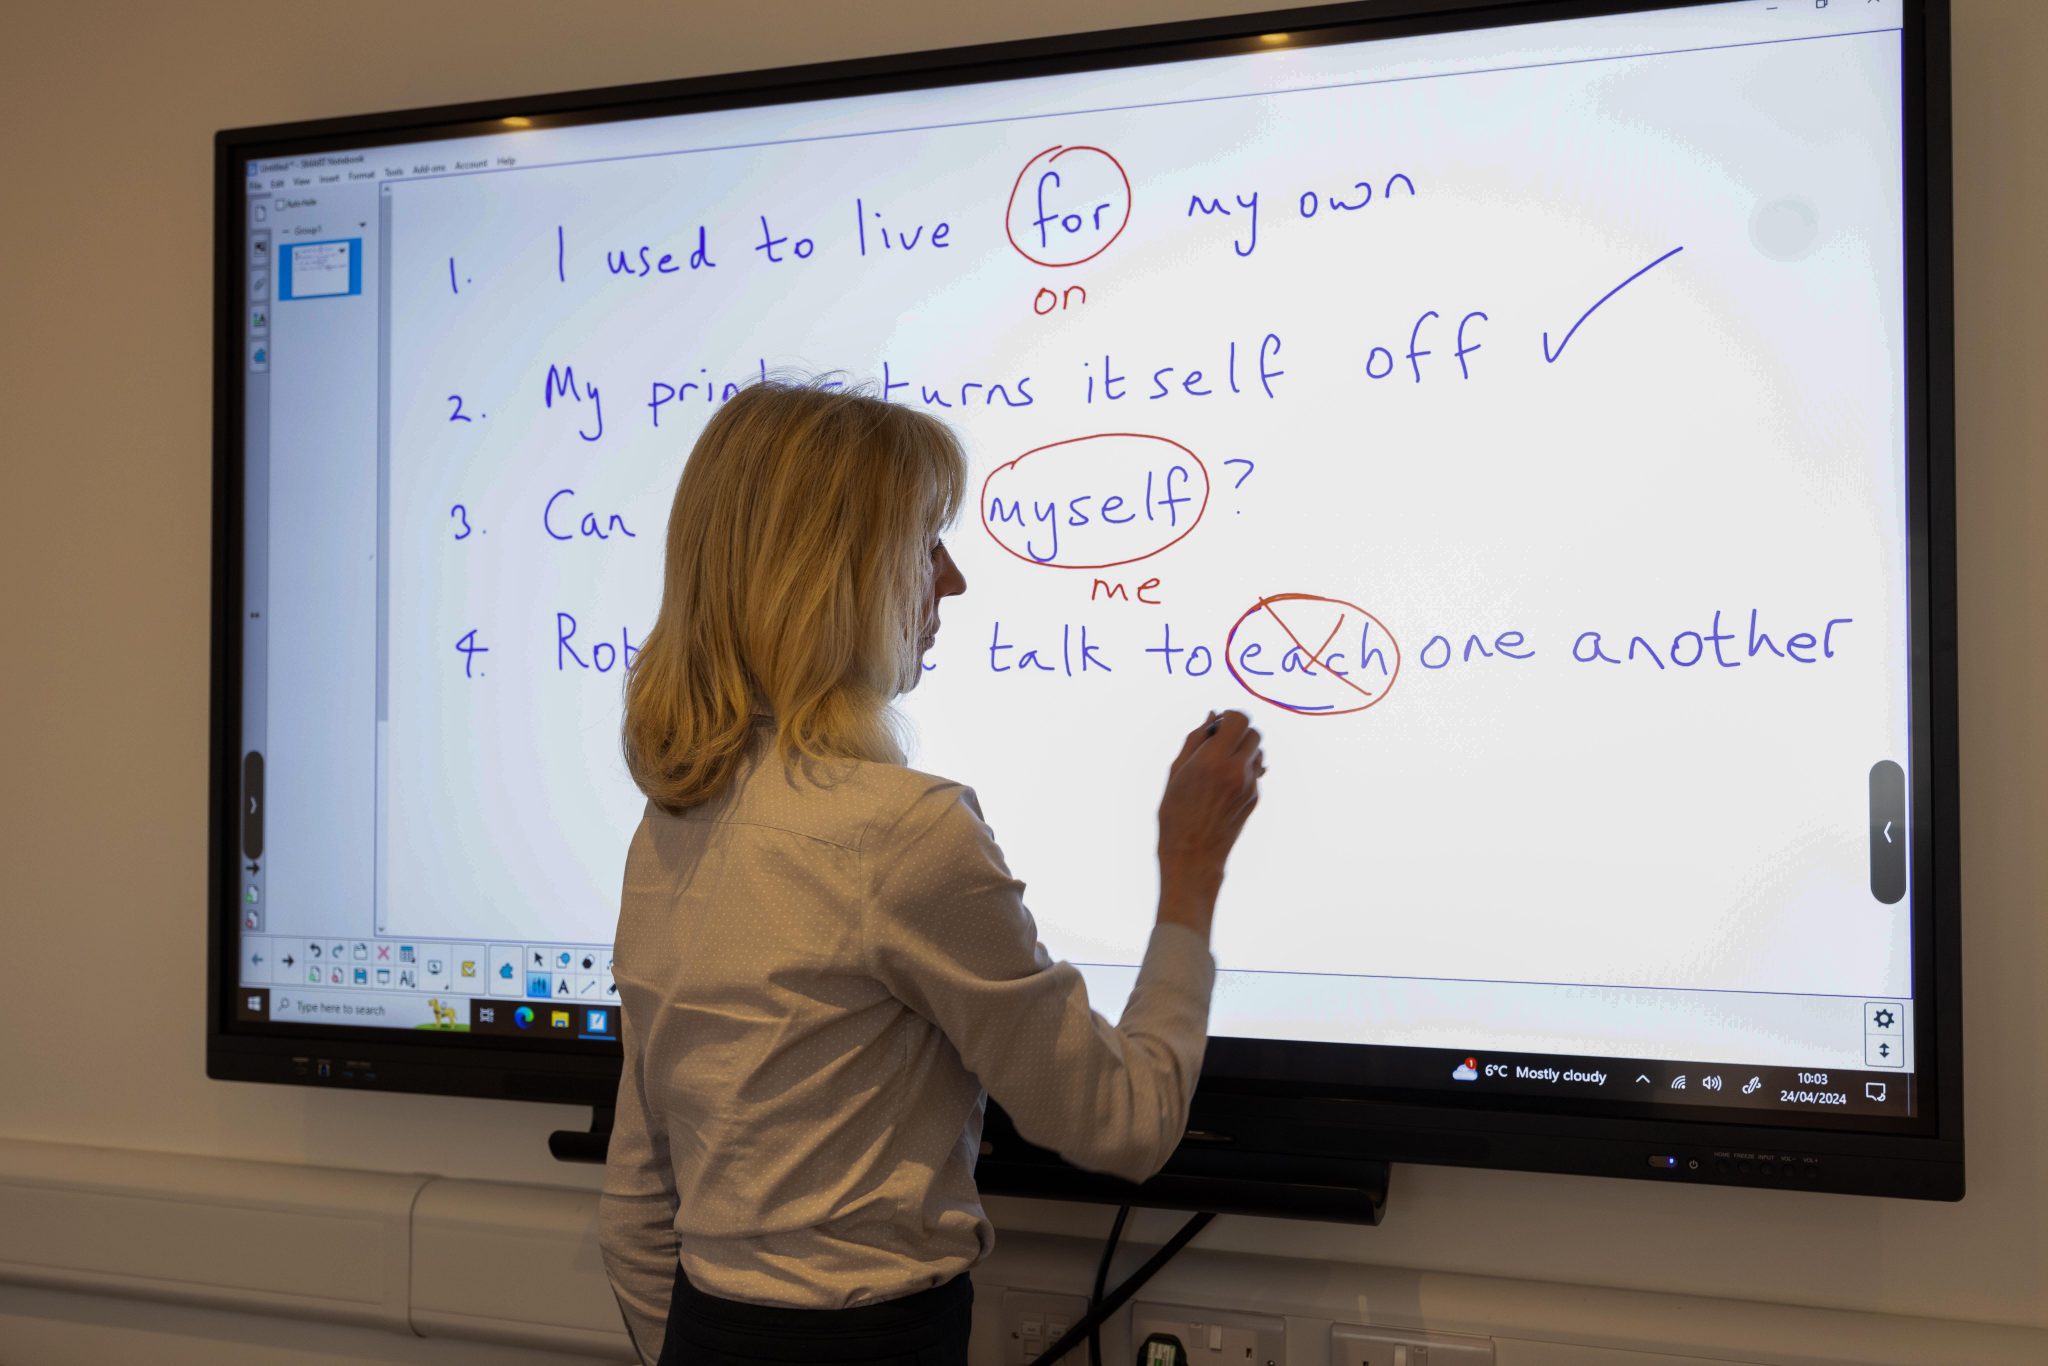 Untitled* - SMART Notebook
File Edit View Insert Format Tools Add-ons Account Help
Auto-hide
Group1
1. I used to live for my own
on
2. My turns itself off
3. Can myself?
me
4. talk to each one another
Type here to search
6°C Mostly cloudy
10:03
24/04/2024
HOME FREEZE INPUT VOL- VOL+